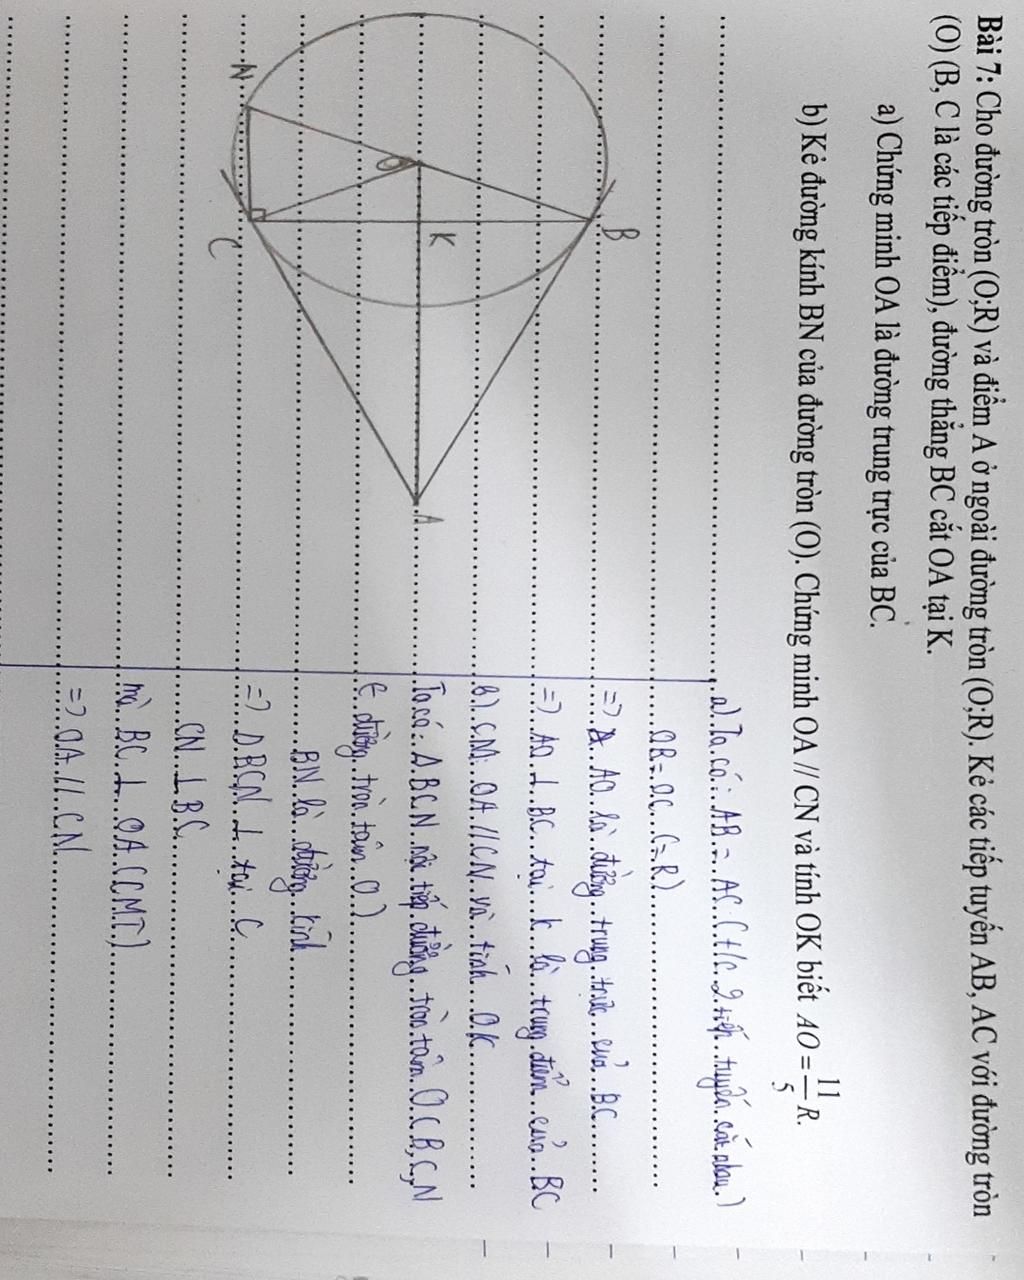 Bài 7: Cho đường tròn (O;R) và điểm A ở ngoài đường tròn (O;R). Kẻ các tiếp tuyến AB, AC với đường tròn
(O) (B, C là các tiếp điểm), đường thẳng BC cắt OA tại K.
a) Chứng minh OA là đường trung trực của BC.
b) Kẻ đường kính BN của đường tròn (O). Chứng minh OA // CN và tính OK biết AO = 11/5 R.
B
O
K
A
N
C
a) Ta có: AB = AC (t/c 2 tiếp tuyến cắt nhau)
OB = OC (= R)
=> AO là đường trung trực của BC
=> AO ⊥ BC tại K là trung điểm của BC
b) CM: OA // CN và tính OK
Ta có: Δ BCN nội tiếp đường tròn tâm O (B, C, N
∈ đường tròn tâm O)
BN là đường kính
=> Δ BCN ⊥ tại C
CN ⊥ BC
mà BC ⊥ OA (CMT)
=> OA // CN